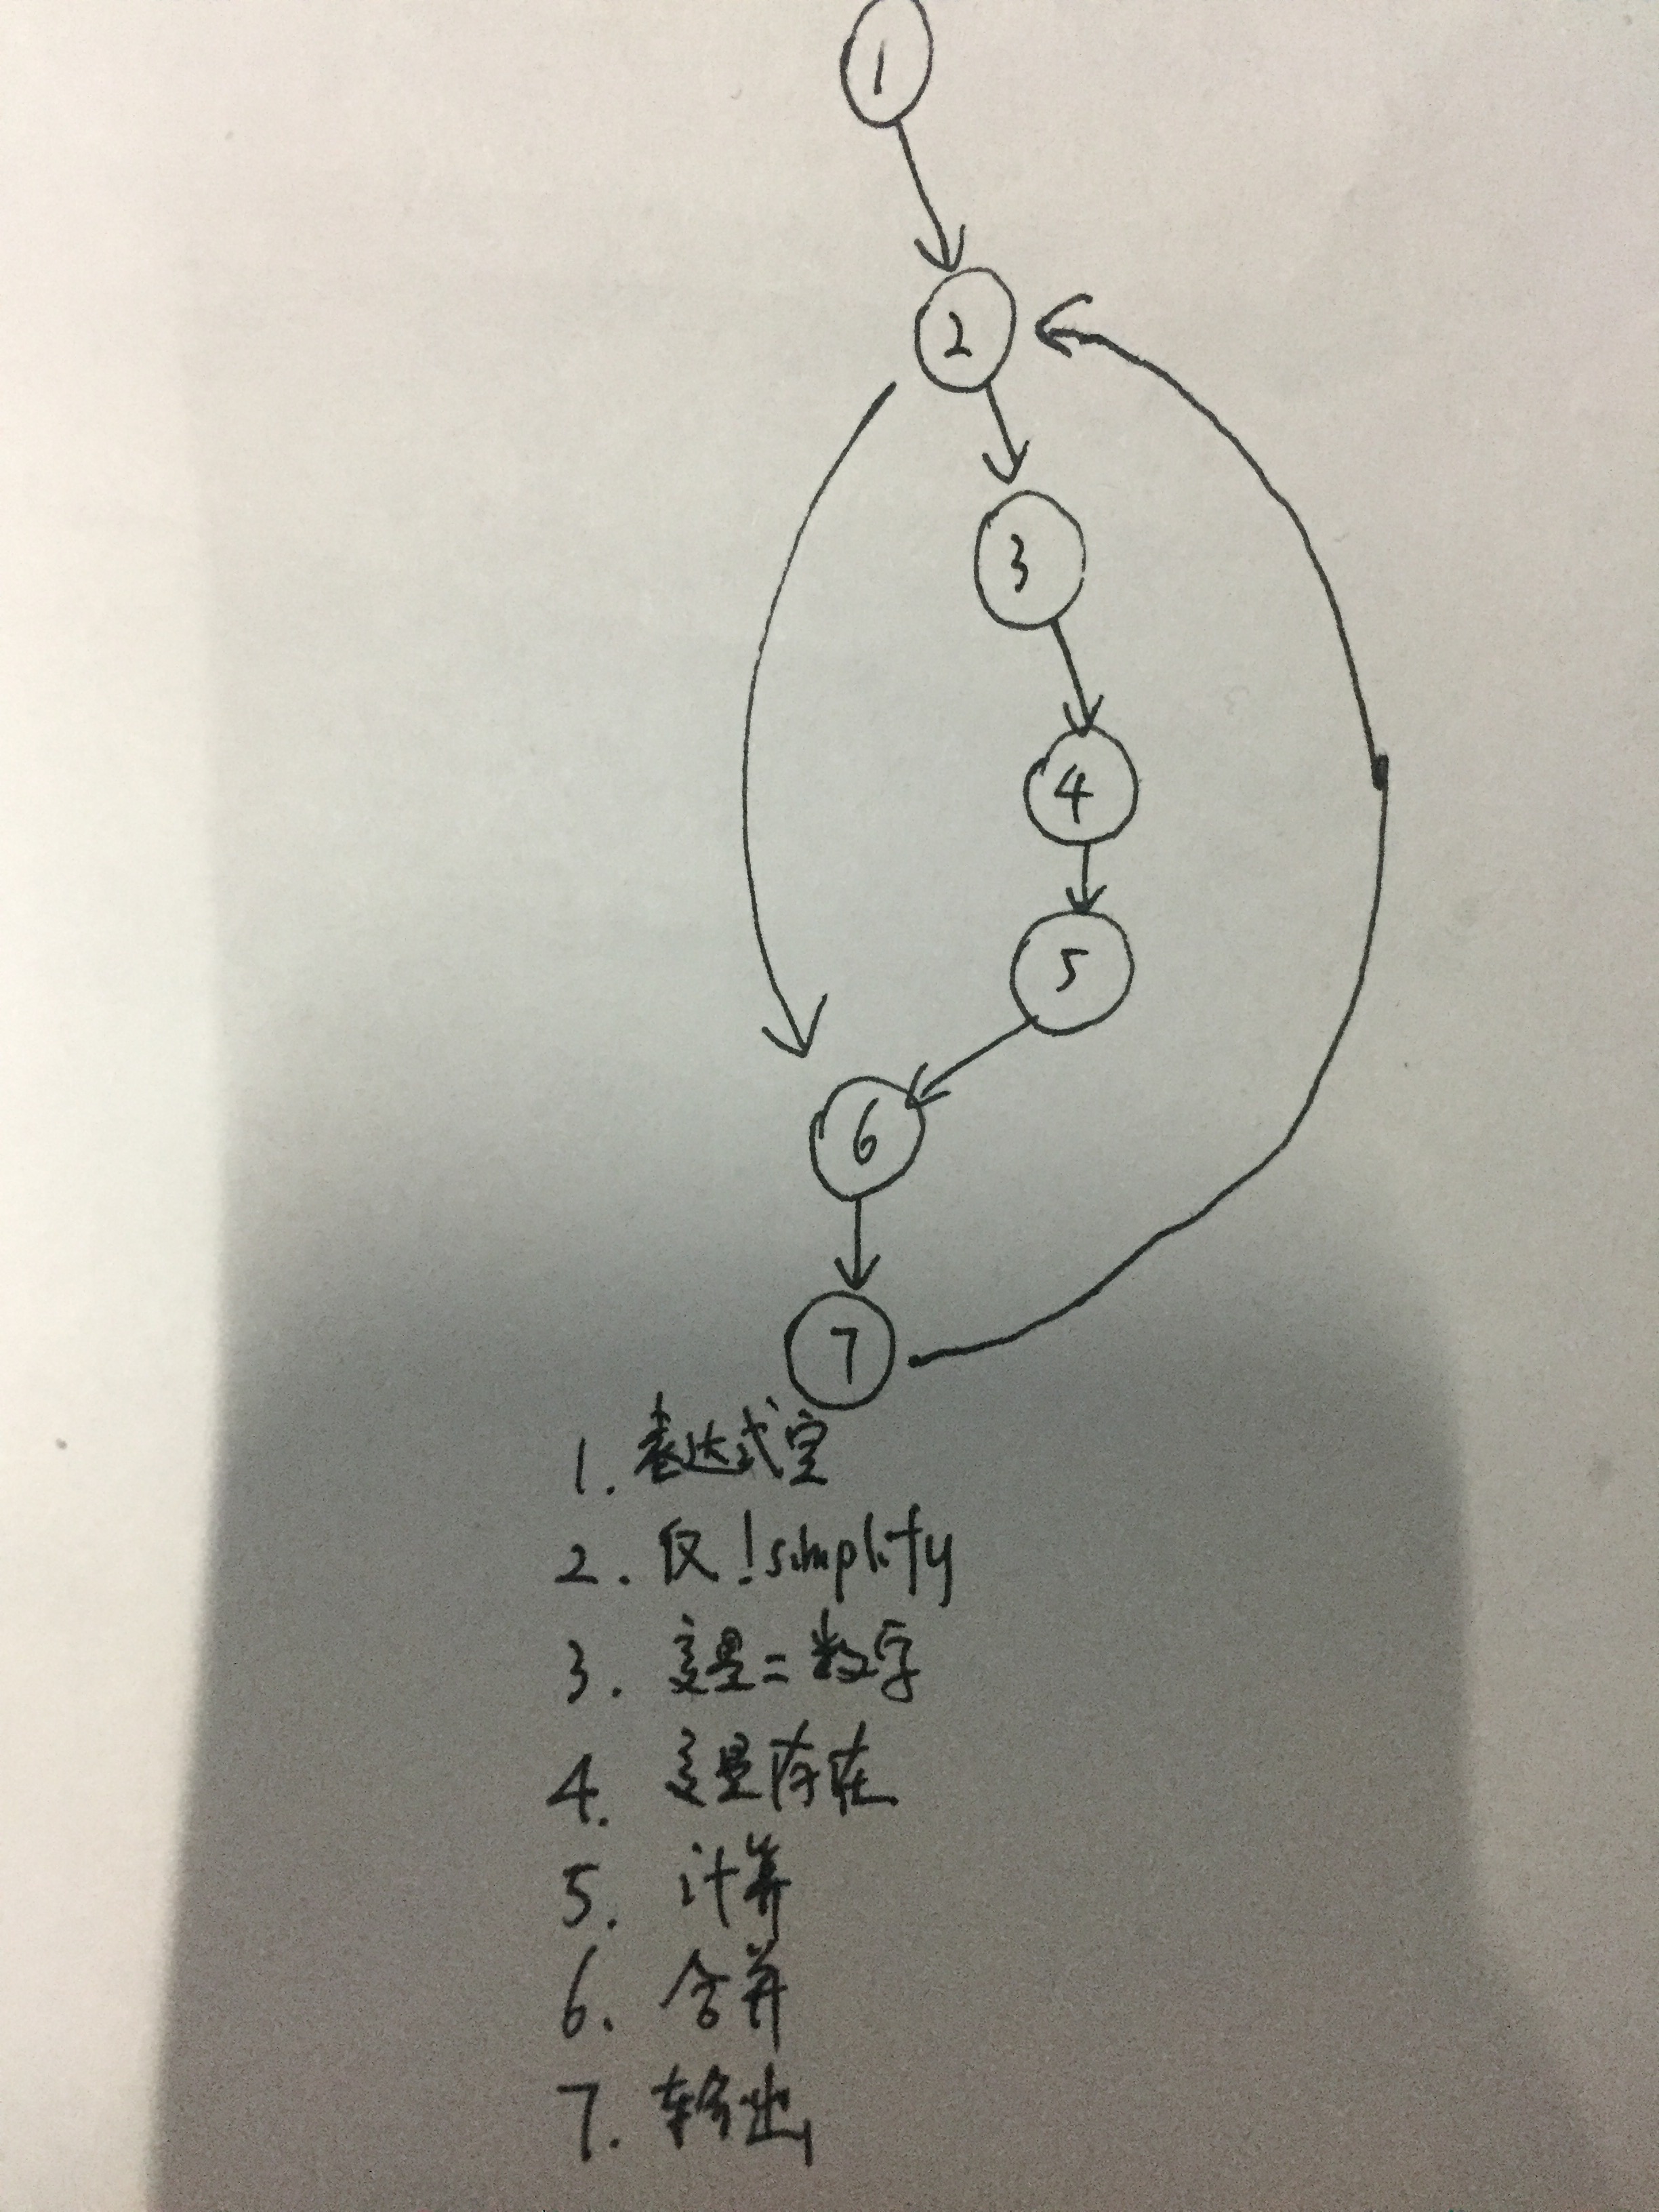 1
2
3
4
5
6
7
1. 表达式空
2. 仅!simplify
3. 变量=数字
4. 变量存在
5. 计算
6. 合并
7. 输出